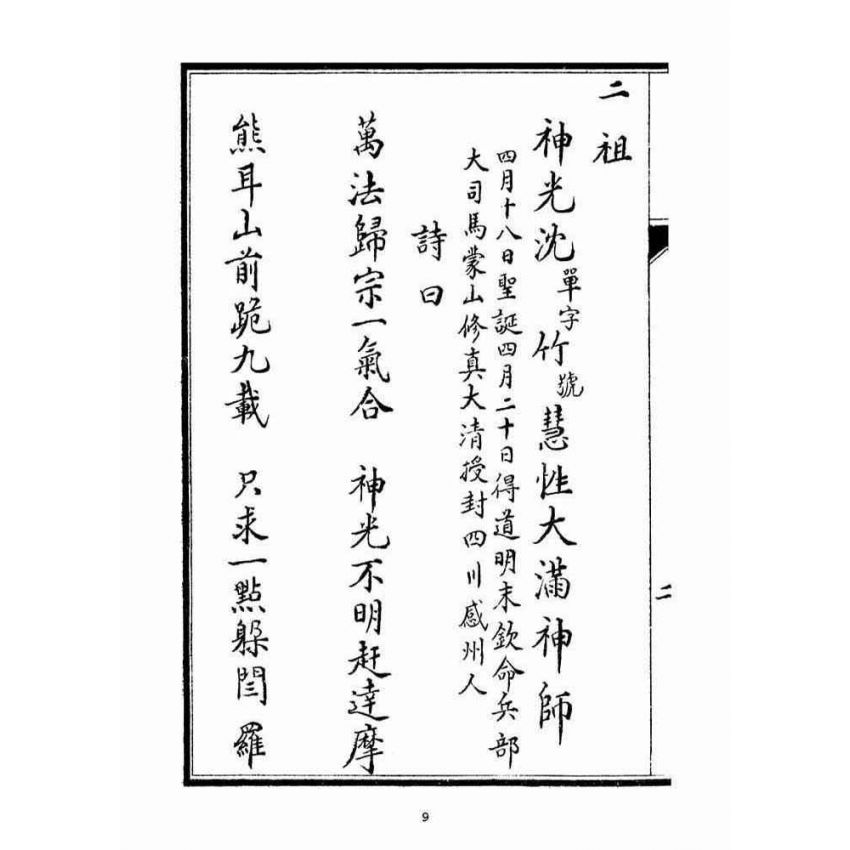 二祖
神光沈單字竹號慧性大滿神師
四月十八日聖誕四月二十日得道明末欽命兵部
大司馬蒙山修真大清授封四川感州人
詩曰
萬法歸宗一氣合 神光不明赶達摩
熊耳山前跪九載 只求一點躲閆羅
二
9